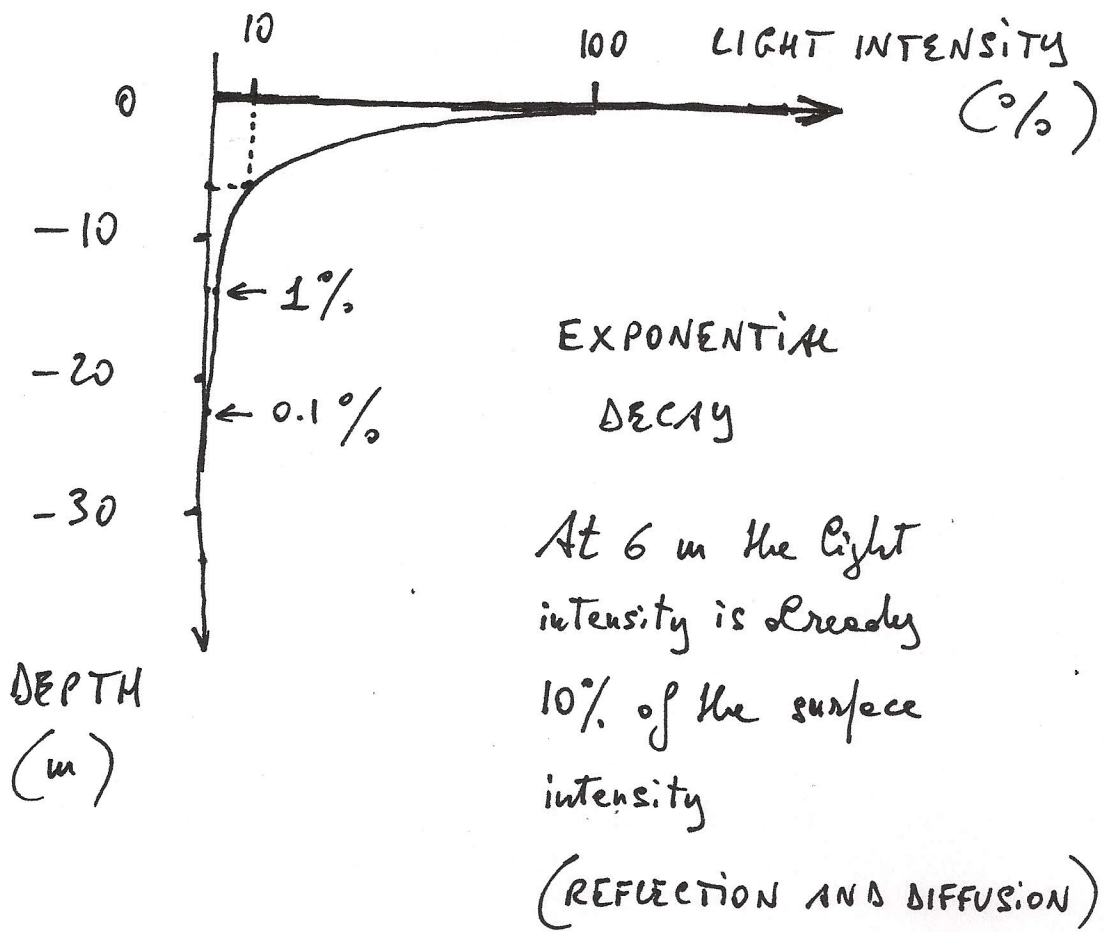 10
100 LIGHT INTENSITY
(%)
0
-10
← 1%
-20
← 0.1%
-30
DEPTH
(m)
EXPONENTIAL
DECAY
At 6 m the light
intensity is already
10% of the surface
intensity
(REFLECTION AND DIFFUSION)